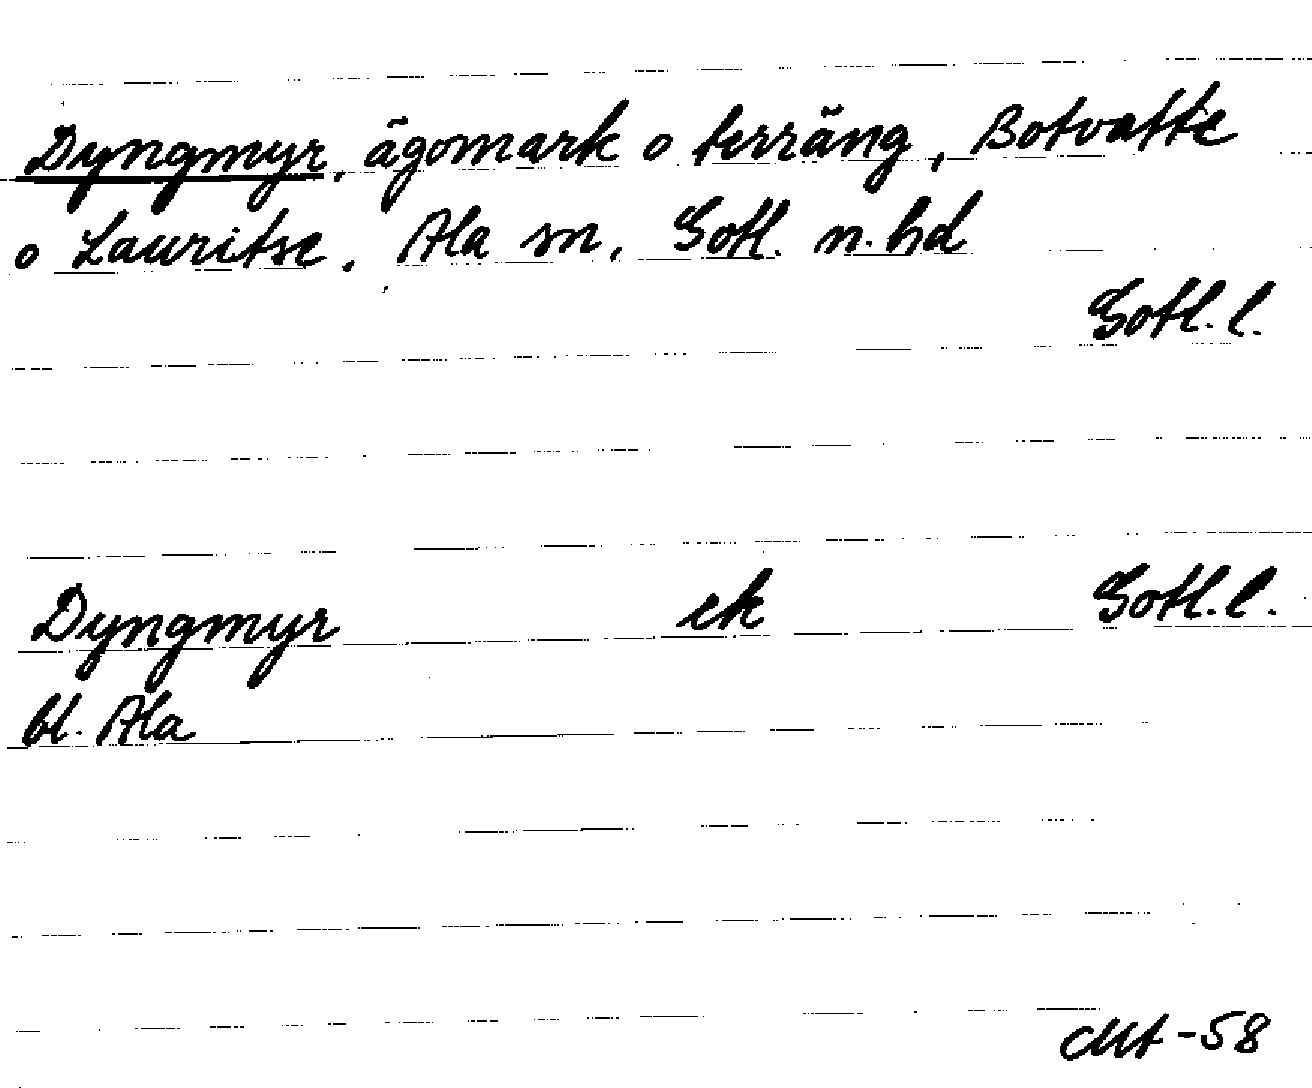 Dyngmyr, ägomark o terräng, Botvatte
o Lauritse, Ala sn, Gotl. n. hd
Gotl. l.
Dyngmyr ek Gotl. l.
bl. Ala
-58